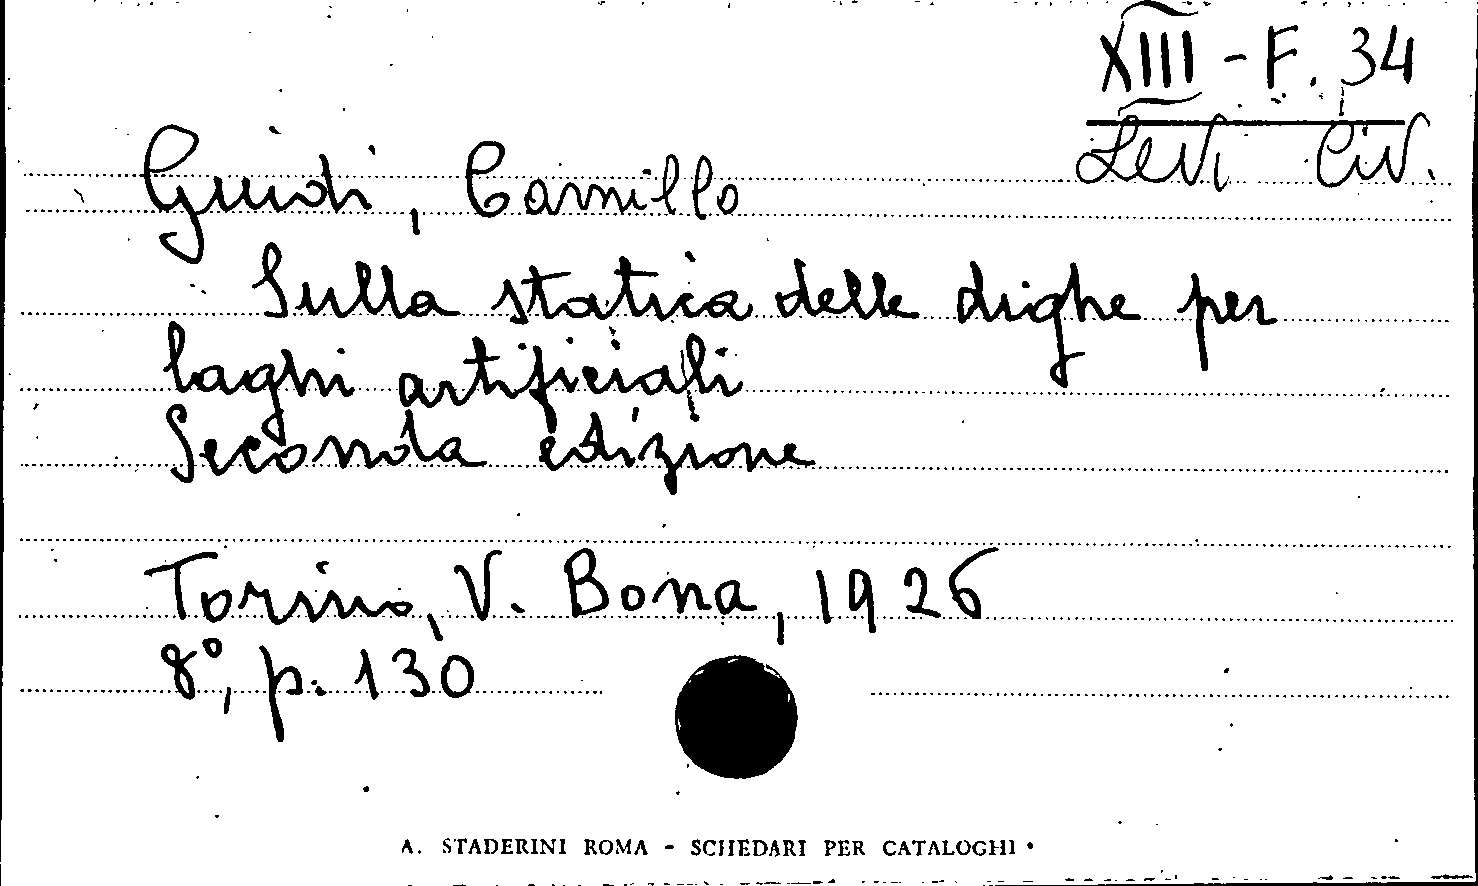 XIII - F. 34
Levi Civ.
Guidi, Camillo
Sulla statica delle dighe per
laghi artificiali
Seconda edizione
Torino, V. Bona, 1926
8°, p. 130
A. STADERINI ROMA - SCHEDARI PER CATALOGHI •